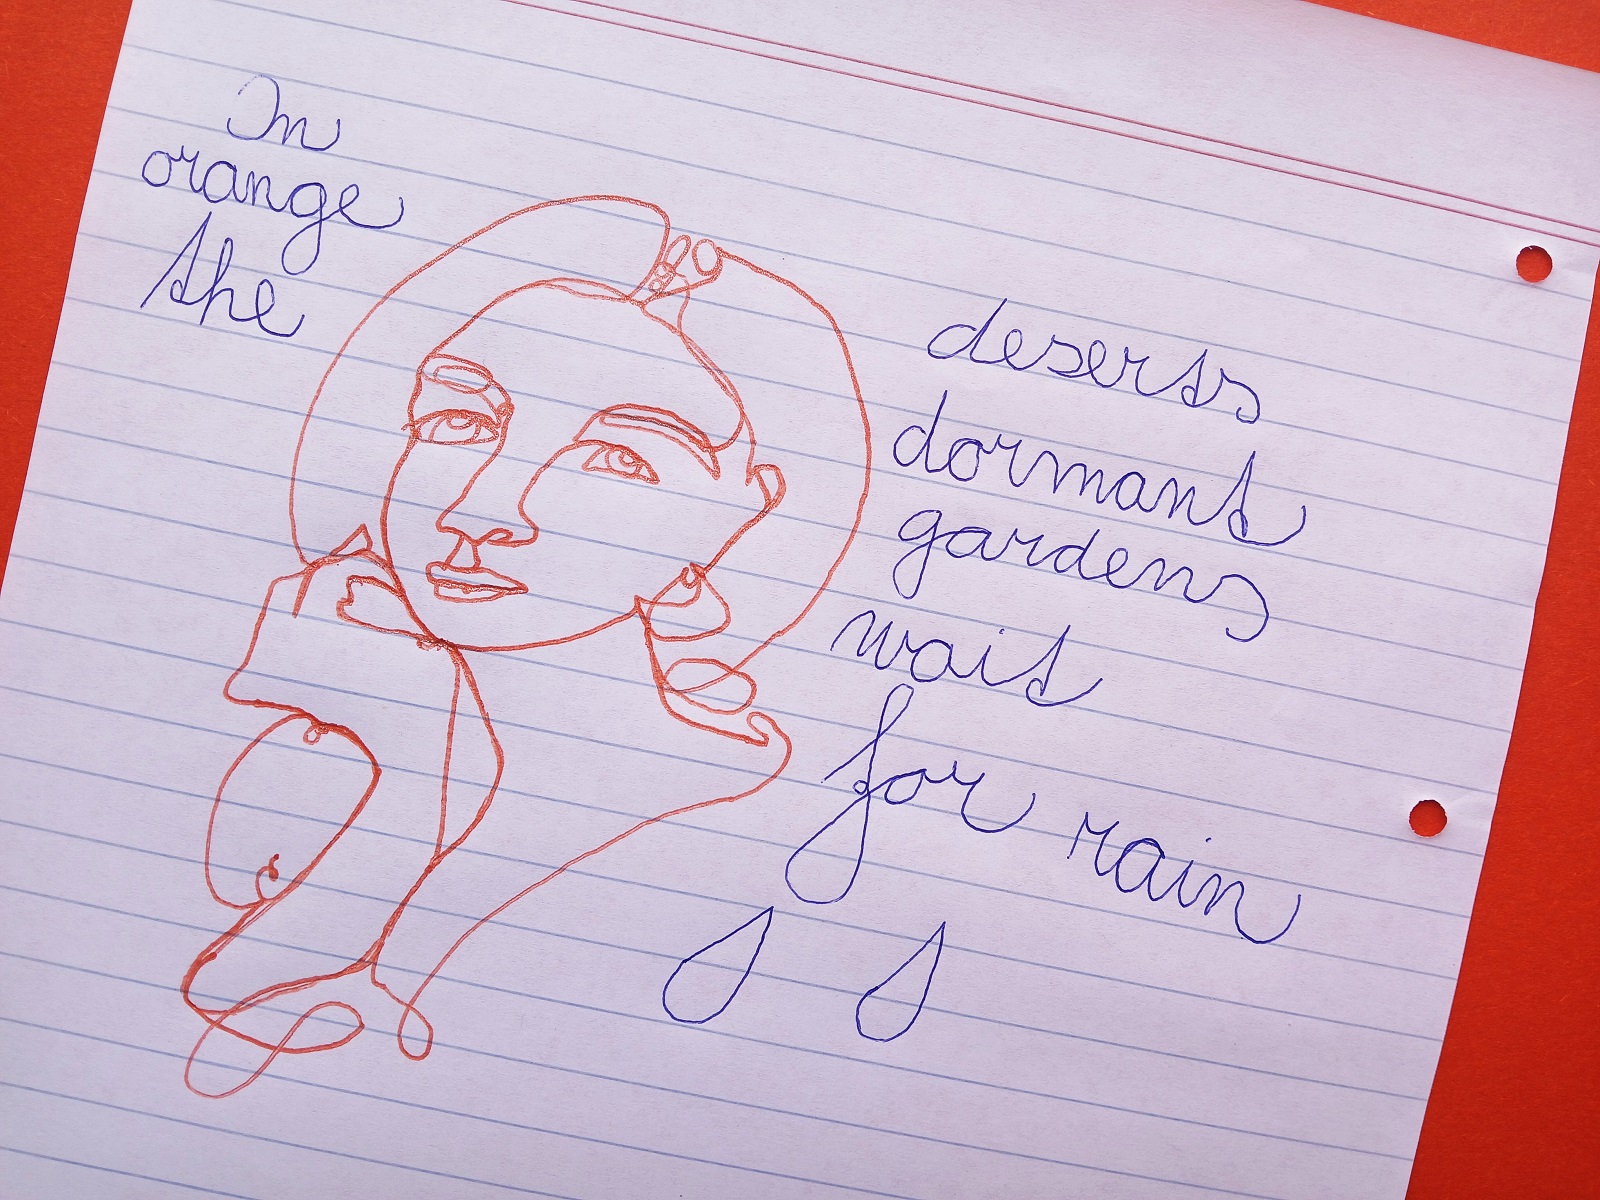 In
orange
the
deserts
dormant
gardens
wait
for rain